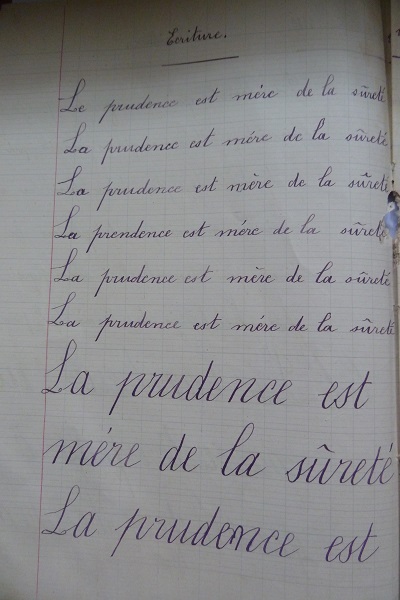 Ecriture.
Le prudence est mére de la sûreté
La prudence est mére de la sûreté
La prudence est mère de la sûreté
La prendence est mére de la sûreté
La prudence est mère de la sûreté
La prudence est mére de la sûreté
La prudence est
mére de la sûreté
La prudence est